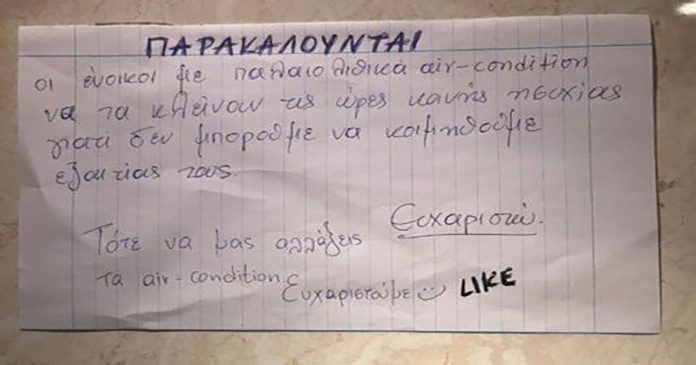 ΠΑΡΑΚΑΛΟΥΝΤΑΙ
οι ένοικοι με παλαιολιθικά air-condition
να τα κλείνουν τις ώρες κοινής ησυχίας
γιατί δεν μπορούμε να κοιμηθούμε
εξαιτίας τους.
Ευχαριστώ.
Τότε να μας αλλάξεις
τα air-condition.
Ευχαριστούμε☺ LIKE